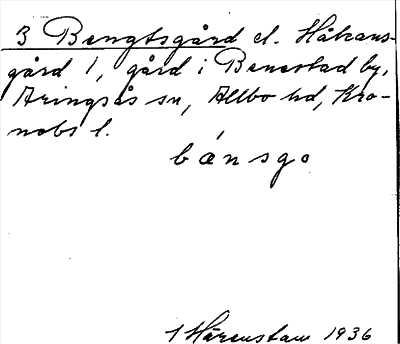 3 Bengtsgård el. Håkans-
gård 1, gård i Benestad by,
Aringsås sn, Allbo hd, Kro-
nobs l.
bánsgo
1 Härenstam 1936